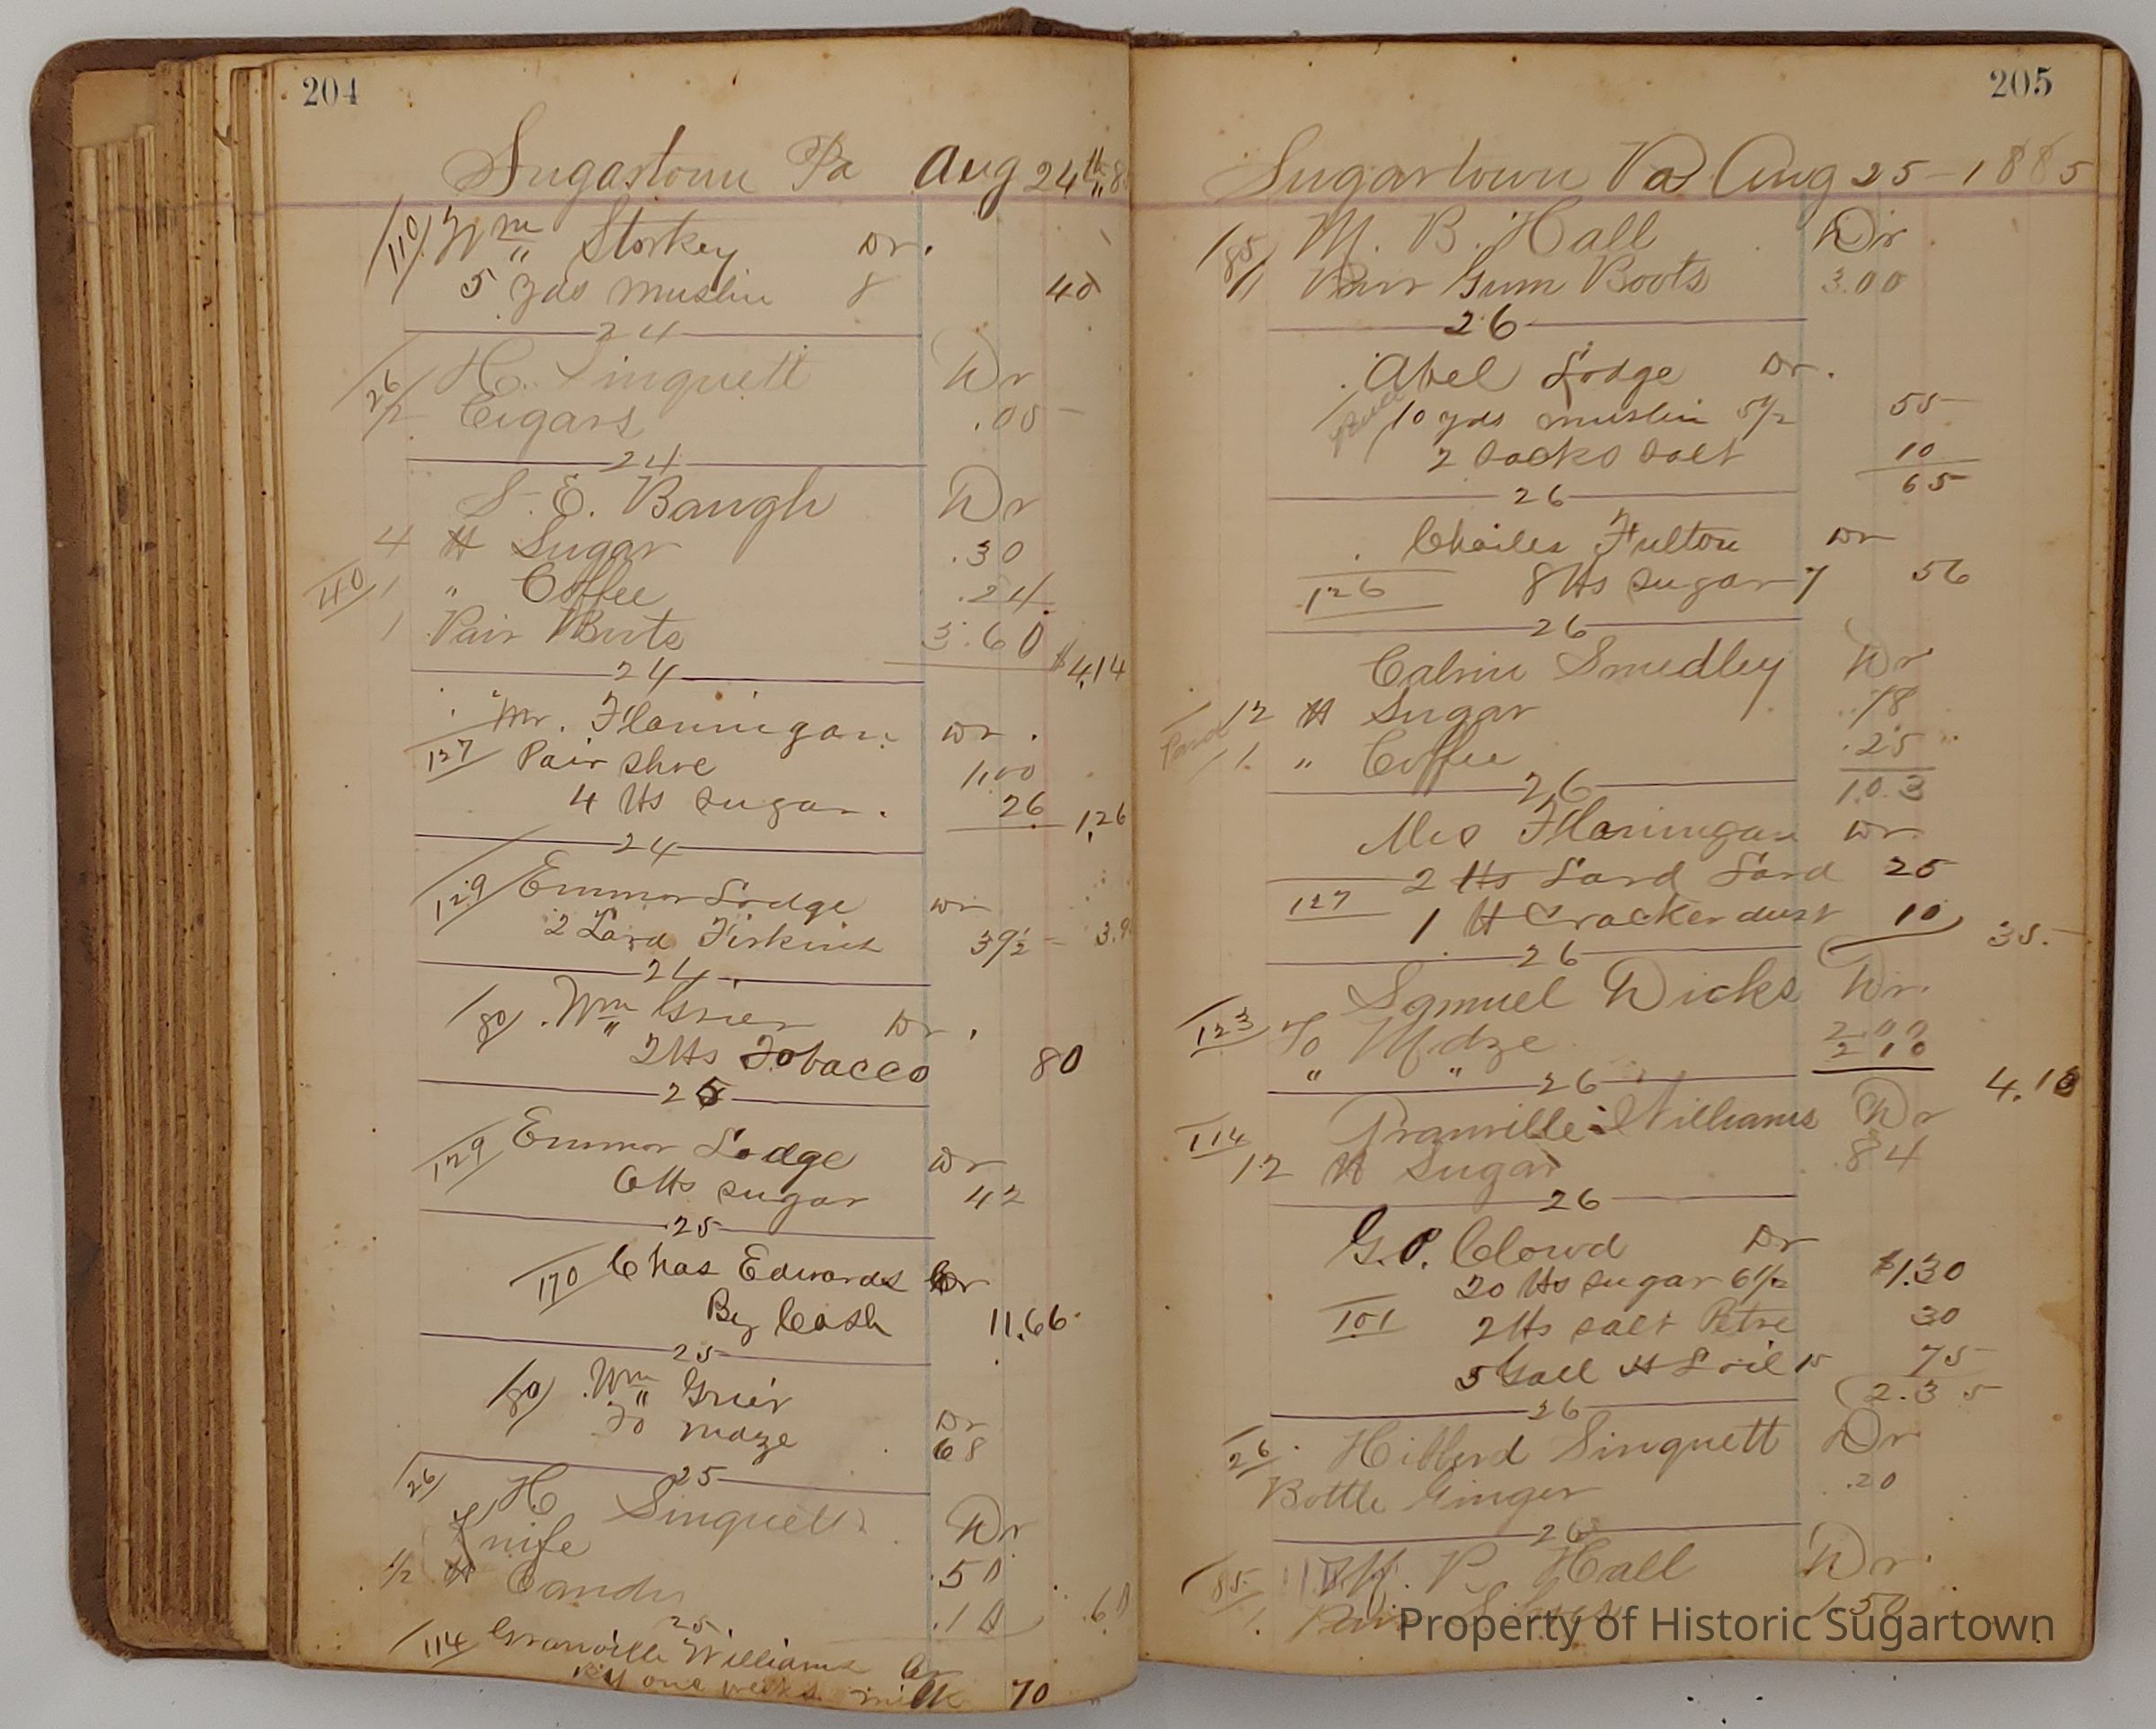 204
Sugartown Pa Aug 24th
110 Wm Storkey Dr.
5 yds muslin 8 40
24
26 H. Singuett Dr
2 Cigars .05
24
S. E. Baugh Dr
4 lb Sugar .30
140 1 " Coffee .24
1 Pair Boots 3.60 $4,14
24
Mr. Flannigan Dr.
127 Pair Shoe 1,00
4 lbs sugar. 26 1,26
24
129 Emmor Lodge Dr
2 Lard Firkins 39½
24
80 Wm Grier Dr.
2 lbs Tobacco 80
25
129 Emmor Lodge Dr
6 lbs sugar 42
25
170 Chas Edwards Cr
By Cash 11.66
25
80 Wm Grier
To maze Dr
68
25
26 H Singuett Dr
Knife .50
½ lb Candy .10 .60
25
114 Granville Williams Cr
By one weeks milk 70
205
Sugartown Pa Aug 25-1885
85 M. B. Hall Dr
1 Pair Gum Boots 3.00
26
Abel Lodge Dr.
10 yds muslin 5½ 55
2 sacks salt 10
65
26
Charles Fulton Dr
126 8 lbs sugar 7 56
26
Calvin Smedley Dr
12 lb Sugar .78
Paid 1 " Coffee .25
26 1.03
Mrs Flannigan Dr
2 lbs Lard Lard 25
127 1 lb Cracker dust 10 35.
26
Samuel Dicks Dr.
123 To Mdze 2.00
" " 2 10
26 4.10
Granville Williams Dr
114 12 lb Sugar .84
26
G. P. Clowd Dr
20 lbs sugar 6½ $1.30
101 2 lbs salt Petre 30
5 Gall H L oil 15 75
26 2.35
26 Hibberd Singuett Dr
Bottle Ginger .20
26
85 M. P. Hall Dr.
1. Pair Shoes 1.50
Property of Historic Sugartown